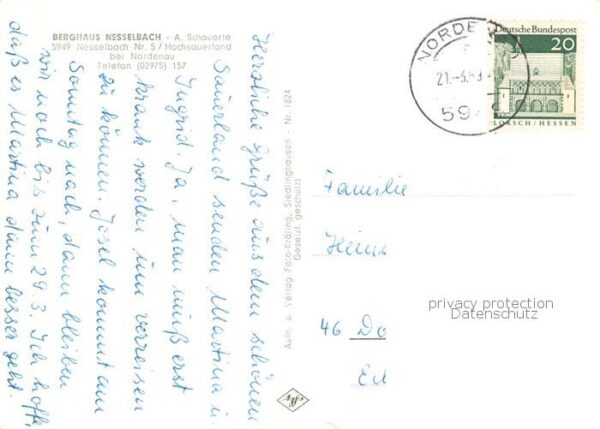 BERGHAUS NESSELBACH - A. Schauerte
5949 Nesselbach Nr. 5 / Hochsauerland
bei Nordenau
Telefon (02975) 157
Herzliche Grüße aus dem schönen
Sauerland senden Martina u.
Ingrid. Ja, man muß erst
krank werden um verreisen
zu können. Josef kommt am
Sonntag nach, dann bleiben
wir noch bis zum 29.3. Ich hoffe,
daß es Martina dann besser geht.
Aufn. u. Verlag Foto-Kräling, Siedlinghausen - Nr. 1824
Gesetzl. geschützt
NORDE
21.-3.
59
Deutsche Bundespost
20
LORSCH/HESSEN
Familie
Heinz
46 Do
privacy protection
Datenschutz